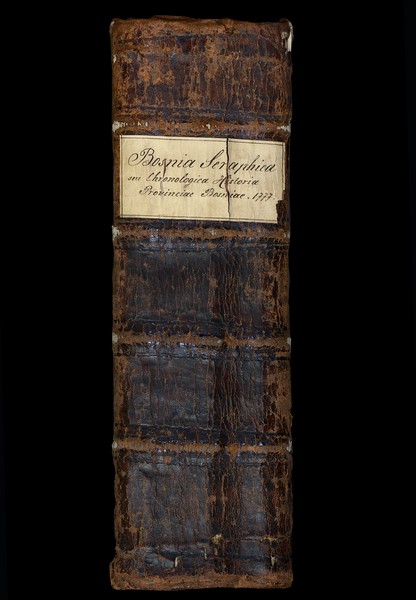 Bosnia Seraphica
seu Chronologica Historia
Provinciae Bosniae. 1777.